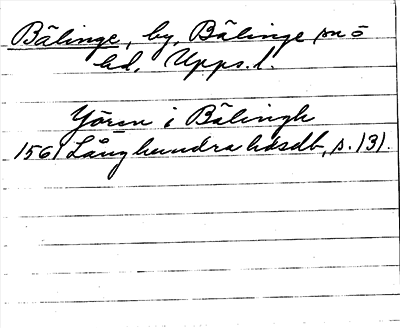 Bälinge, by, Bälinge sn ö
hd, Upps. l.
Yören i Bälingh
1561 Långhundra hdsdb, s. 131.